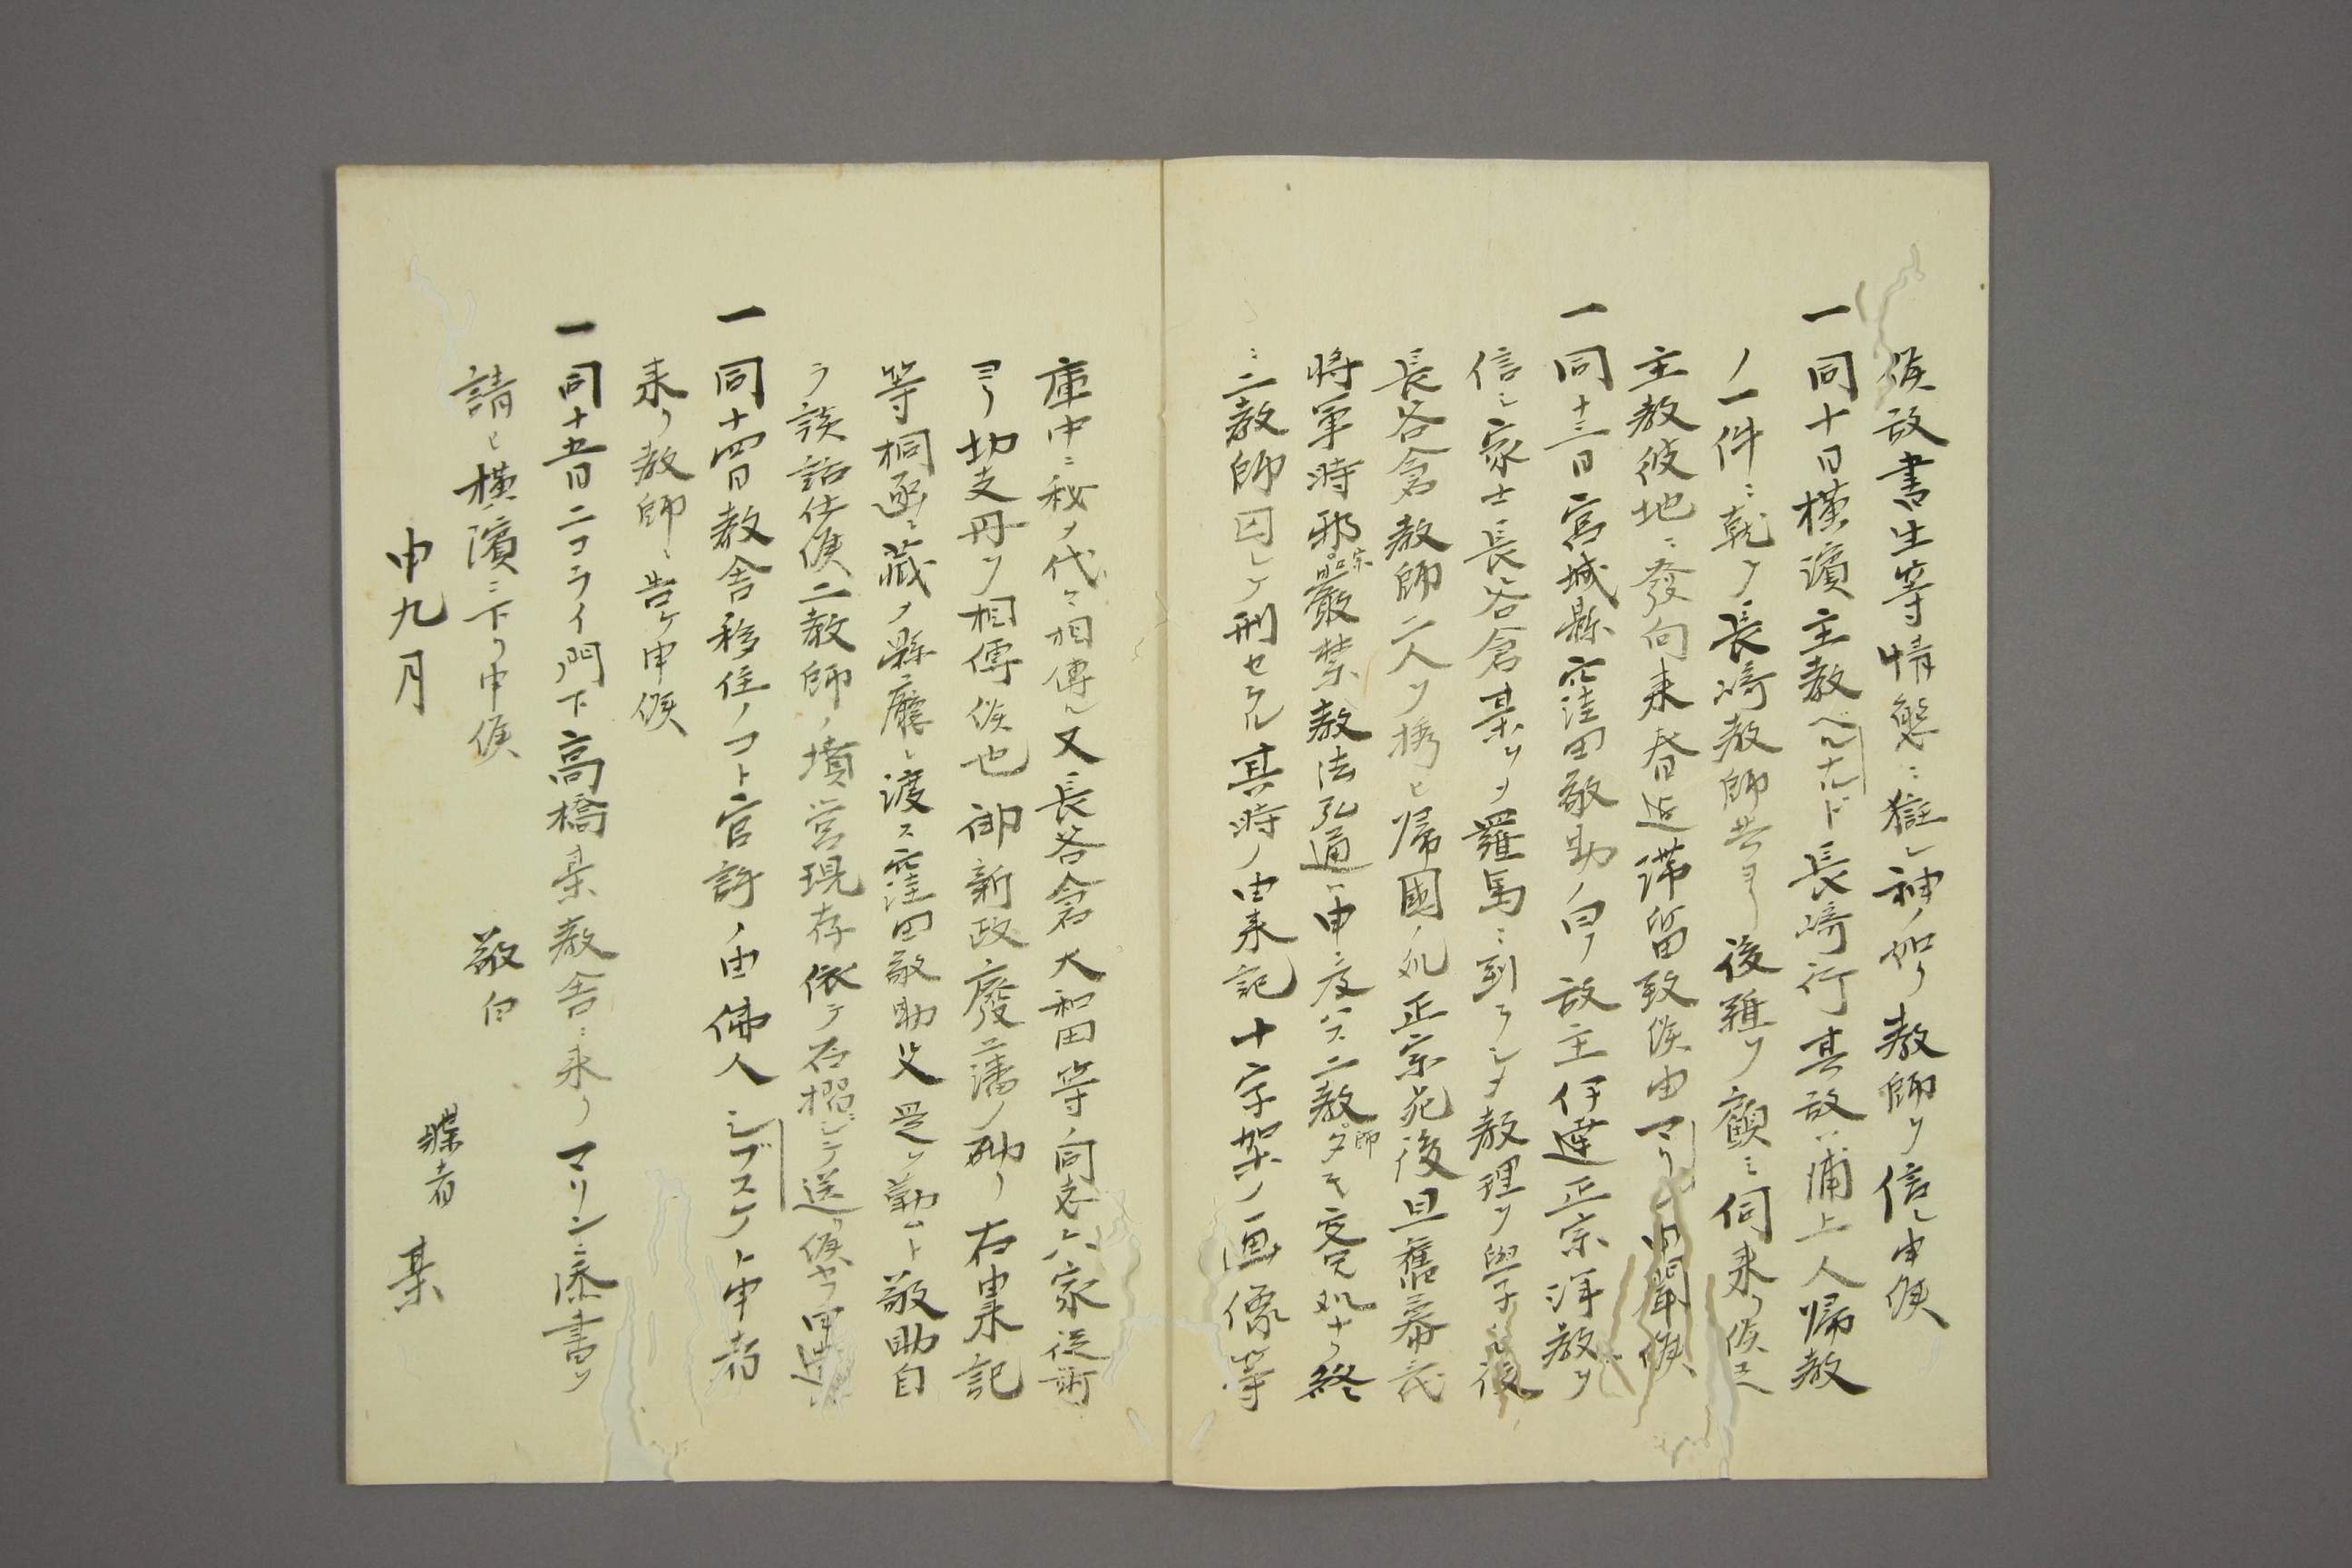 候故書生等情態ニ、神ノ如ク教師ヲ信シ申候
一同十日横濱主教ベルナルド長崎行其故ハ浦上人帰教
ノ一件ニ就テ長崎教師共ヨリ後難ヲ顧ミ伺来リ候エハ
主教彼地ニ發向来春日迄滞留致候由マリン内聞候
一同十三日宮城縣窪田敬助ノ曰ク故主伊達正宗洋教ヲ
信シ家士長谷倉某ヲソ羅馬ニ到ラシメ教理ヲ學シ後
長谷倉教師二人ヲ携ヒ帰國ノ処正宗死後旦舊幕三代
将軍時邪宗嚴禁教法弘通ハ申ニ及ハズ二教師タモ交兄処ナク終
ニ二教師囚レテ刑セラル其時ノ由来記十字架ノ画像等
庫中ニ秘メ代々相傳ル又長谷倉大和田等ノ同志六家従前
ヨリ切支丹ヲ相傳候也御新政廢藩ノ砌リ右由来記
等桐函ニ藏メ縣廳ニ渡ス窪田敬助父是ヲ勤ムト敬助自
ラ談話仕候二教師ノ墳営現存依テ石摺シテ送候ヤウ申遣
一同十四日教舎移住ノコト官許ノ由佛人レブスケト申者
来リ教師ニ告ケ申候
一同十五日ニコライ門下高橋某教舎ニ来リマリンニ添書ヲ
請ヒ横濱ニ下リ申候
敬白
申九月
諜者 某